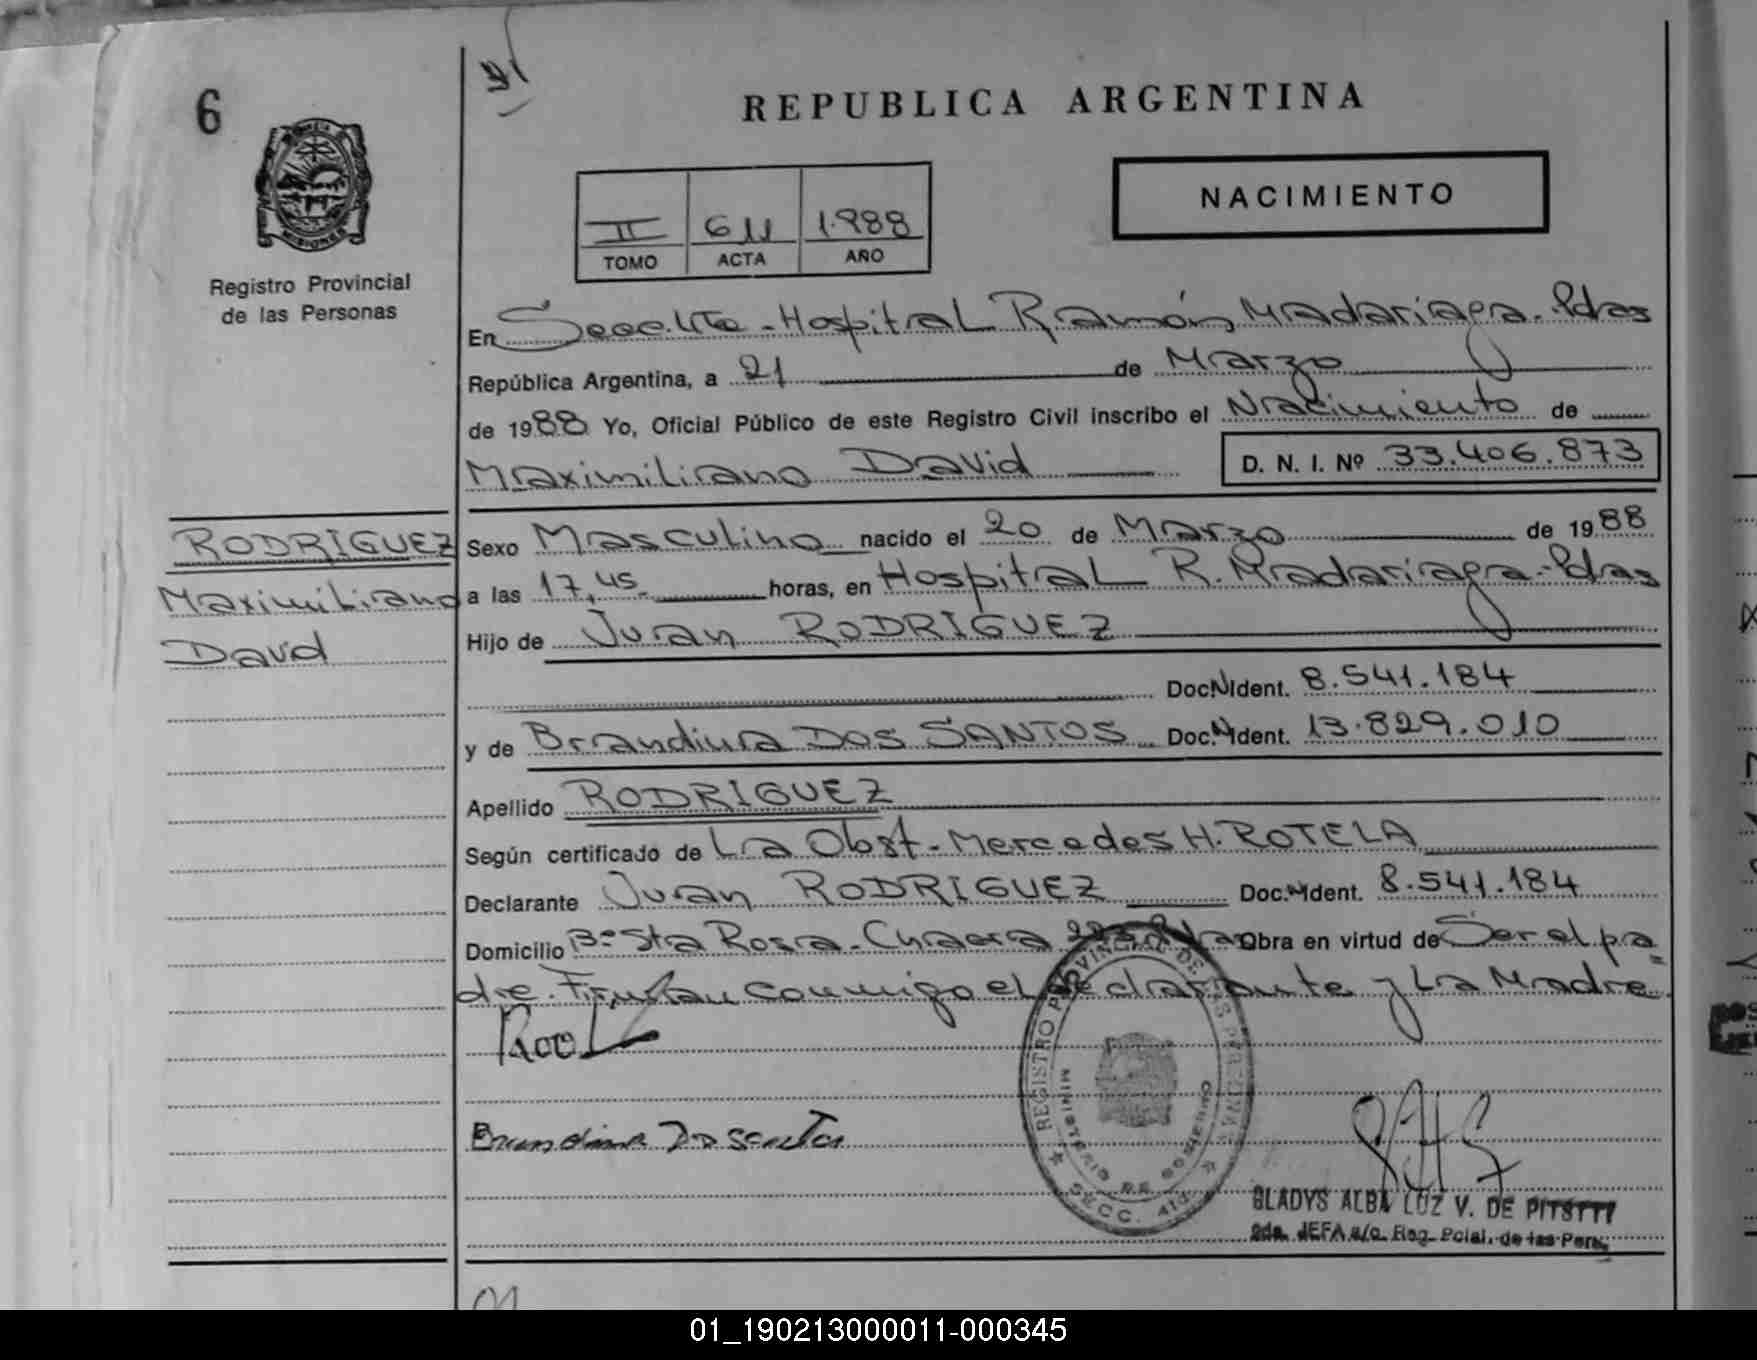 6
REPUBLICA ARGENTINA
NACIMIENTO
II 611 1.988
TOMO ACTA AÑO
Registro Provincial
de las Personas
En Secc. 4ta - Hospital Ramón Madariaga - Pdas
República Argentina, a 21 de Marzo
de 1988 Yo, Oficial Público de este Registro Civil inscribo el Nacimiento de
Maximiliano David D. N. I. Nº 33.406.873
RODRIGUEZ
Maximiliano
David
Sexo Masculino nacido el 20 de Marzo de 1988
a las 17,45 horas, en Hospital R. Madariaga - Pdas
Hijo de Juan RODRIGUEZ
Doc. N Ident. 8.541.184
y de Brandina DOS SANTOS Doc. N Ident. 13.829.010
Apellido RODRIGUEZ
Según certificado de La Obst. Mercedes H. ROTELA
Declarante Juan RODRIGUEZ Doc. N Ident. 8.541.184
Domicilio Bº Sta Rosa - Chacra Obra en virtud de Ser el pa=
dre. Firman conmigo el declarante y La Madre.
REGISTRO PROVINCIAL DE LAS PERSONAS
MINISTERIO DE GOBIERNO
SECC. 4TA
GLADYS ALBA LUZ V. DE
JEFA a/c. Reg. Pcial. de las Pers.
01_190213000011-000345